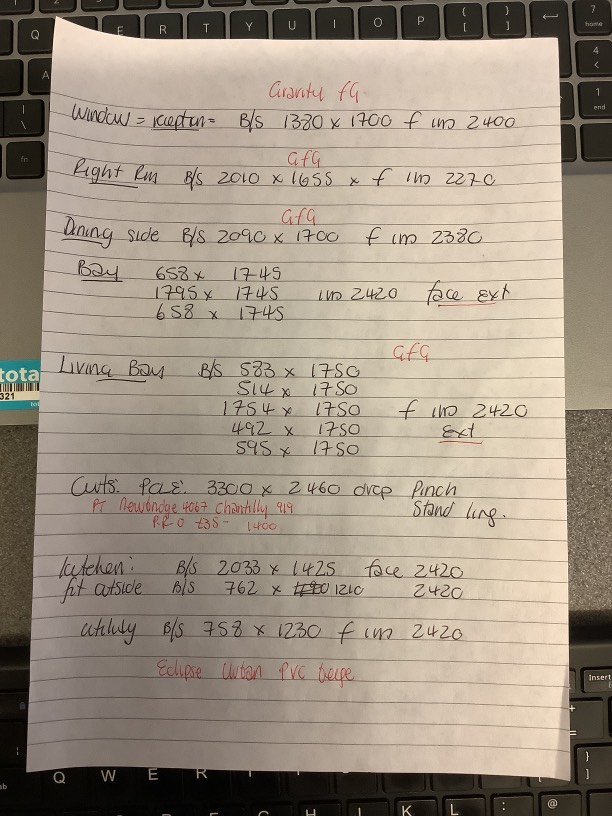 Gravity fG.
Window = B/S 1380 x 1700 f im 2400
GfG
Right Rm B/S 2010 x 1655 x f im 2270
GfG
Dining side B/S 2090 x 1700 f im 2380
Bay 658 x 1745
1795 x 1745 im 2420 face ext
658 x 1745
GfG
Living Bay B/S 583 x 1750
514 x 1750
1754 x 1750 f im 2420
492 x 1750 Ext
595 x 1750
Curts. Pole. 3300 x 2460 drop Pinch
PT Newbridge 4067 Chantilly 919 Stand
£35- 1400
kitchen: B/S 2033 x 1425 face 2420
fit outside B/S 762 x 1210 2420
utility B/S 758 x 1230 f im 2420
Eclipse PVC beige
Q E R T Y U I O P { [ } ] 7 home
A 4
| \ 1 end
fn
tota
321
Insert
Q W E R
H J K L : @